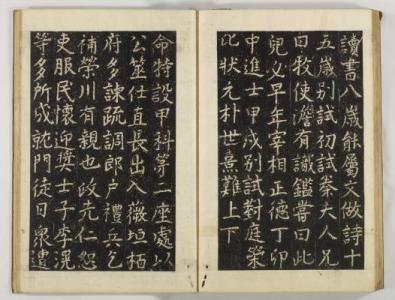 讀書八歲能屬文做詩十
五歲別試初試夫人兄
曰牧使澹有識鑑嘗曰此
兒必早年宰相正德丁卯
中進士甲戌別試對庭策
比狀元朴世熹難上下
命特設甲科第二座處以
公筮仕直長出入薇垣栢
府多諫疏調郎戶禮兵乞
補榮川有親也政先仁恕
吏服民懷迎獎士子李滉
等多所成就門徒日衆遣